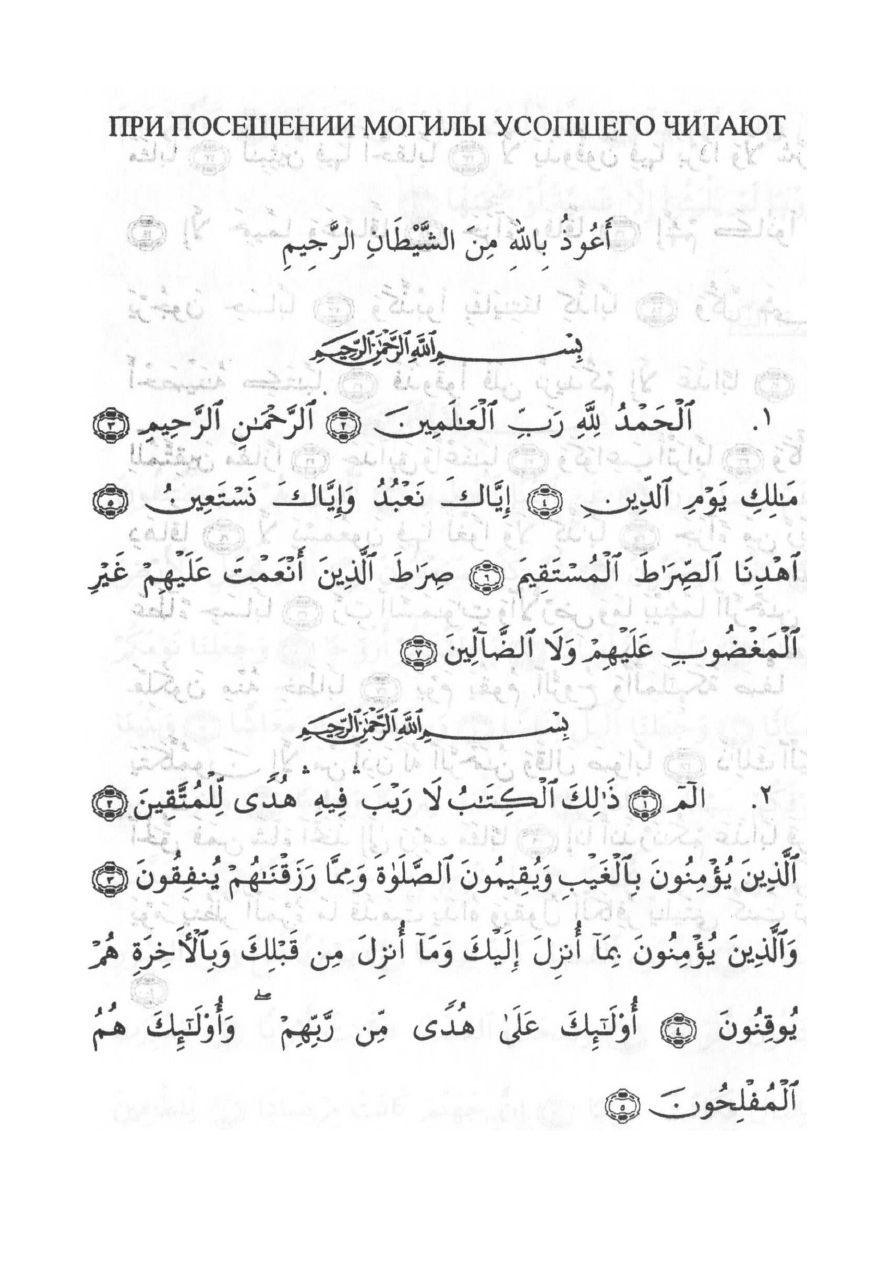 ПРИ ПОСЕЩЕНИИ МОГИЛЫ УСОПШЕГО ЧИТАЮТ
أَعُوذُ بِاللهِ مِنَ الشَّيْطَانِ الرَّجِيمِ
بِسْمِ ٱللَّهِ ٱلرَّحْمَٰنِ ٱلرَّحِيمِ
١. ٱلْحَمْدُ لِلَّهِ رَبِّ ٱلْعَٰلَمِينَ ﴿٢﴾ ٱلرَّحْمَٰنِ ٱلرَّحِيمِ ﴿٣﴾
مَٰلِكِ يَوْمِ ٱلدِّينِ ﴿٤﴾ إِيَّاكَ نَعْبُدُ وَإِيَّاكَ نَسْتَعِينُ ﴿٥﴾
ٱهْدِنَا ٱلصِّرَٰطَ ٱلْمُسْتَقِيمَ ﴿٦﴾ صِرَٰطَ ٱلَّذِينَ أَنْعَمْتَ عَلَيْهِمْ غَيْرِ
ٱلْمَغْضُوبِ عَلَيْهِمْ وَلَا ٱلضَّآلِّينَ ﴿٧﴾
بِسْمِ ٱللَّهِ ٱلرَّحْمَٰنِ ٱلرَّحِيمِ
٢. الٓمٓ ﴿١﴾ ذَٰلِكَ ٱلْكِتَٰبُ لَا رَيْبَ ۛ فِيهِ ۛ هُدًى لِّلْمُتَّقِينَ ﴿٢﴾
ٱلَّذِينَ يُؤْمِنُونَ بِٱلْغَيْبِ وَيُقِيمُونَ ٱلصَّلَوٰةَ وَمِمَّا رَزَقْنَٰهُمْ يُنفِقُونَ ﴿٣﴾
وَٱلَّذِينَ يُؤْمِنُونَ بِمَآ أُنزِلَ إِلَيْكَ وَمَآ أُنزِلَ مِن قَبْلِكَ وَبِٱلْأَخِرَةِ هُمْ
يُوقِنُونَ ﴿٤﴾ أُوْلَٰٓئِكَ عَلَىٰ هُدًى مِّن رَّبِّهِمْ ۖ وَأُوْلَٰٓئِكَ هُمُ
ٱلْمُفْلِحُونَ ﴿٥﴾